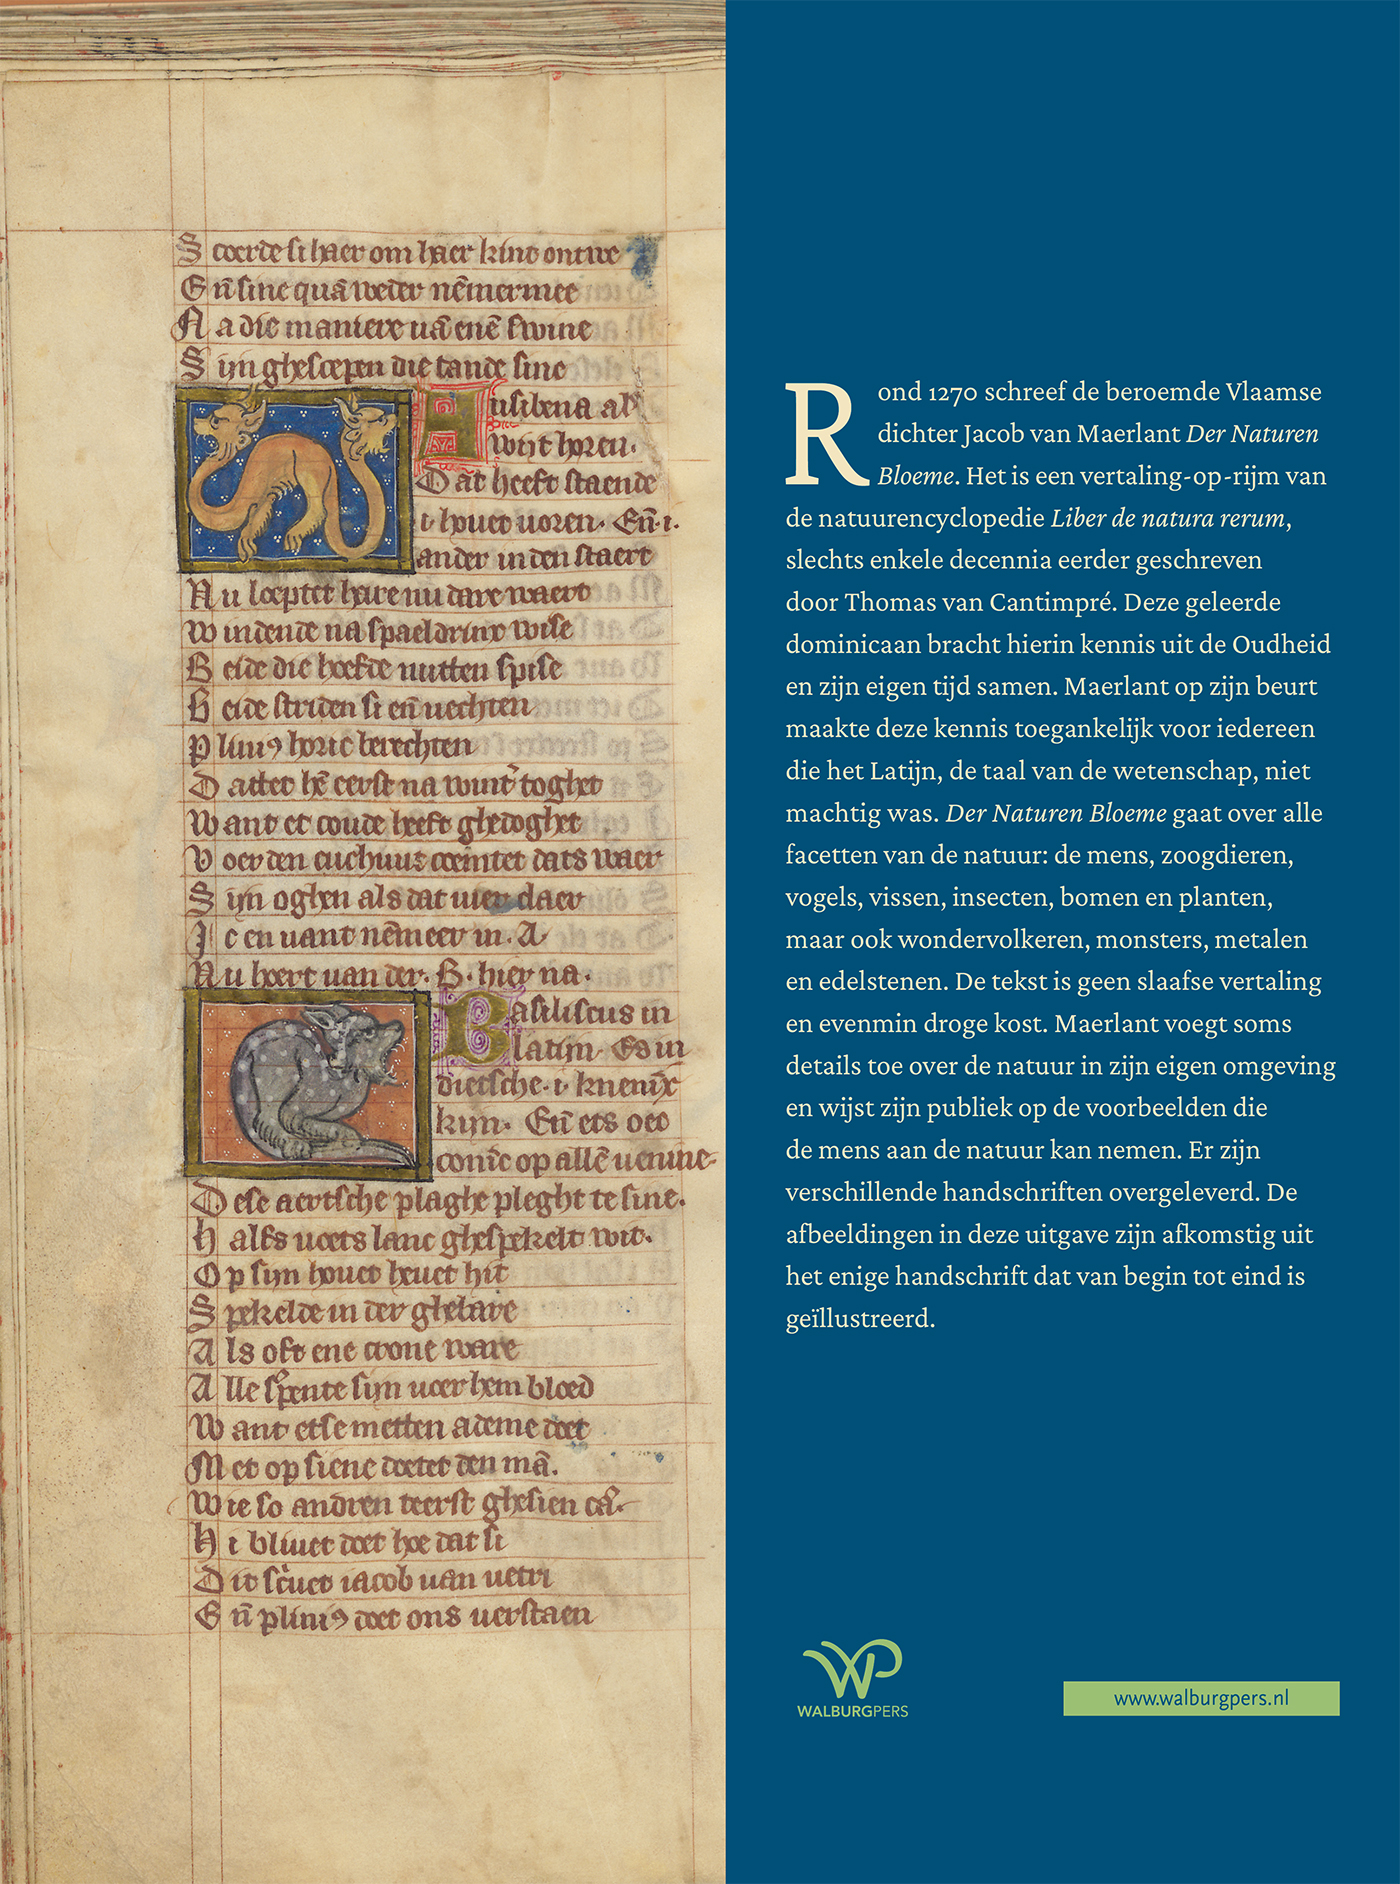 S coerde si haer om haer kint ontwe
En̄ sine quā weder nēmermee
N a die maniere uā enē swine
S ijn ghescepen die tande sine
A
usibena als
wijt horen.
D at heeft staende
i. houet uoren. En̄ .i.
ander in den staert
N u loeptet hare nu dare waert
W indende na spaeldrinx wise
B eide die hoefde nutten spise
B eide striden si en̄ uechten
P linius horic berechten
D attet hē eerst na wint' toghet
W ant et coude heeft ghedoghet
V oer den cuchuus coemtet dats waer
S ijn oghen als dat uier daer
I c en uant nēmeer in. A.
N u hoert van der. B. hier na.
B
asiliscus in
latijn. Es in
dietsche .i.
kijn. En̄ ets oec
coninc op allē uenine
D ese aertsche plaghe pleght te sine.
H alfs uoets lanc ghespekelt wit.
O p sijn houet heuet hit
S pekelde in der ghelare
A ls oft ene crone ware
A lle serpente sijn uoer hem bloed
W ant etse metten ademe doet
M et op siene doetet den mā.
W ie so andren teerst ghesien cā.
H i bliuet doet hoe dat si
D it scriuet iacob uan uetri
E n̄ plinius doet ons uerstaen
Rond 1270 schreef de beroemde Vlaamse
dichter Jacob van Maerlant Der Naturen
Bloeme. Het is een vertaling-op-rijm van
de natuurencyclopedie Liber de natura rerum,
slechts enkele decennia eerder geschreven
door Thomas van Cantimpré. Deze geleerde
dominicaan bracht hierin kennis uit de Oudheid
en zijn eigen tijd samen. Maerlant op zijn beurt
maakte deze kennis toegankelijk voor iedereen
die het Latijn, de taal van de wetenschap, niet
machtig was. Der Naturen Bloeme gaat over alle
facetten van de natuur: de mens, zoogdieren,
vogels, vissen, insecten, bomen en planten,
maar ook wondervolkeren, monsters, metalen
en edelstenen. De tekst is geen slaafse vertaling
en evenmin droge kost. Maerlant voegt soms
details toe over de natuur in zijn eigen omgeving
en wijst zijn publiek op de voorbeelden die
de mens aan de natuur kan nemen. Er zijn
verschillende handschriften overgeleverd. De
afbeeldingen in deze uitgave zijn afkomstig uit
het enige handschrift dat van begin tot eind is
geïllustreerd.
WP
WALBURGPERS
www.walburgpers.nl